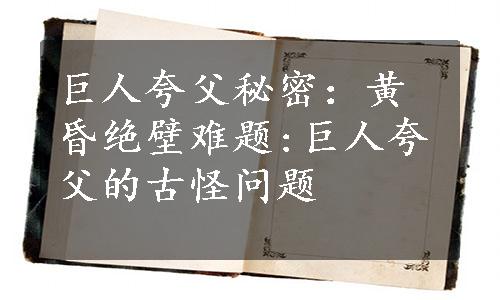 巨人夸父秘密：黄
昏绝壁难题:巨人夸
父的古怪问题